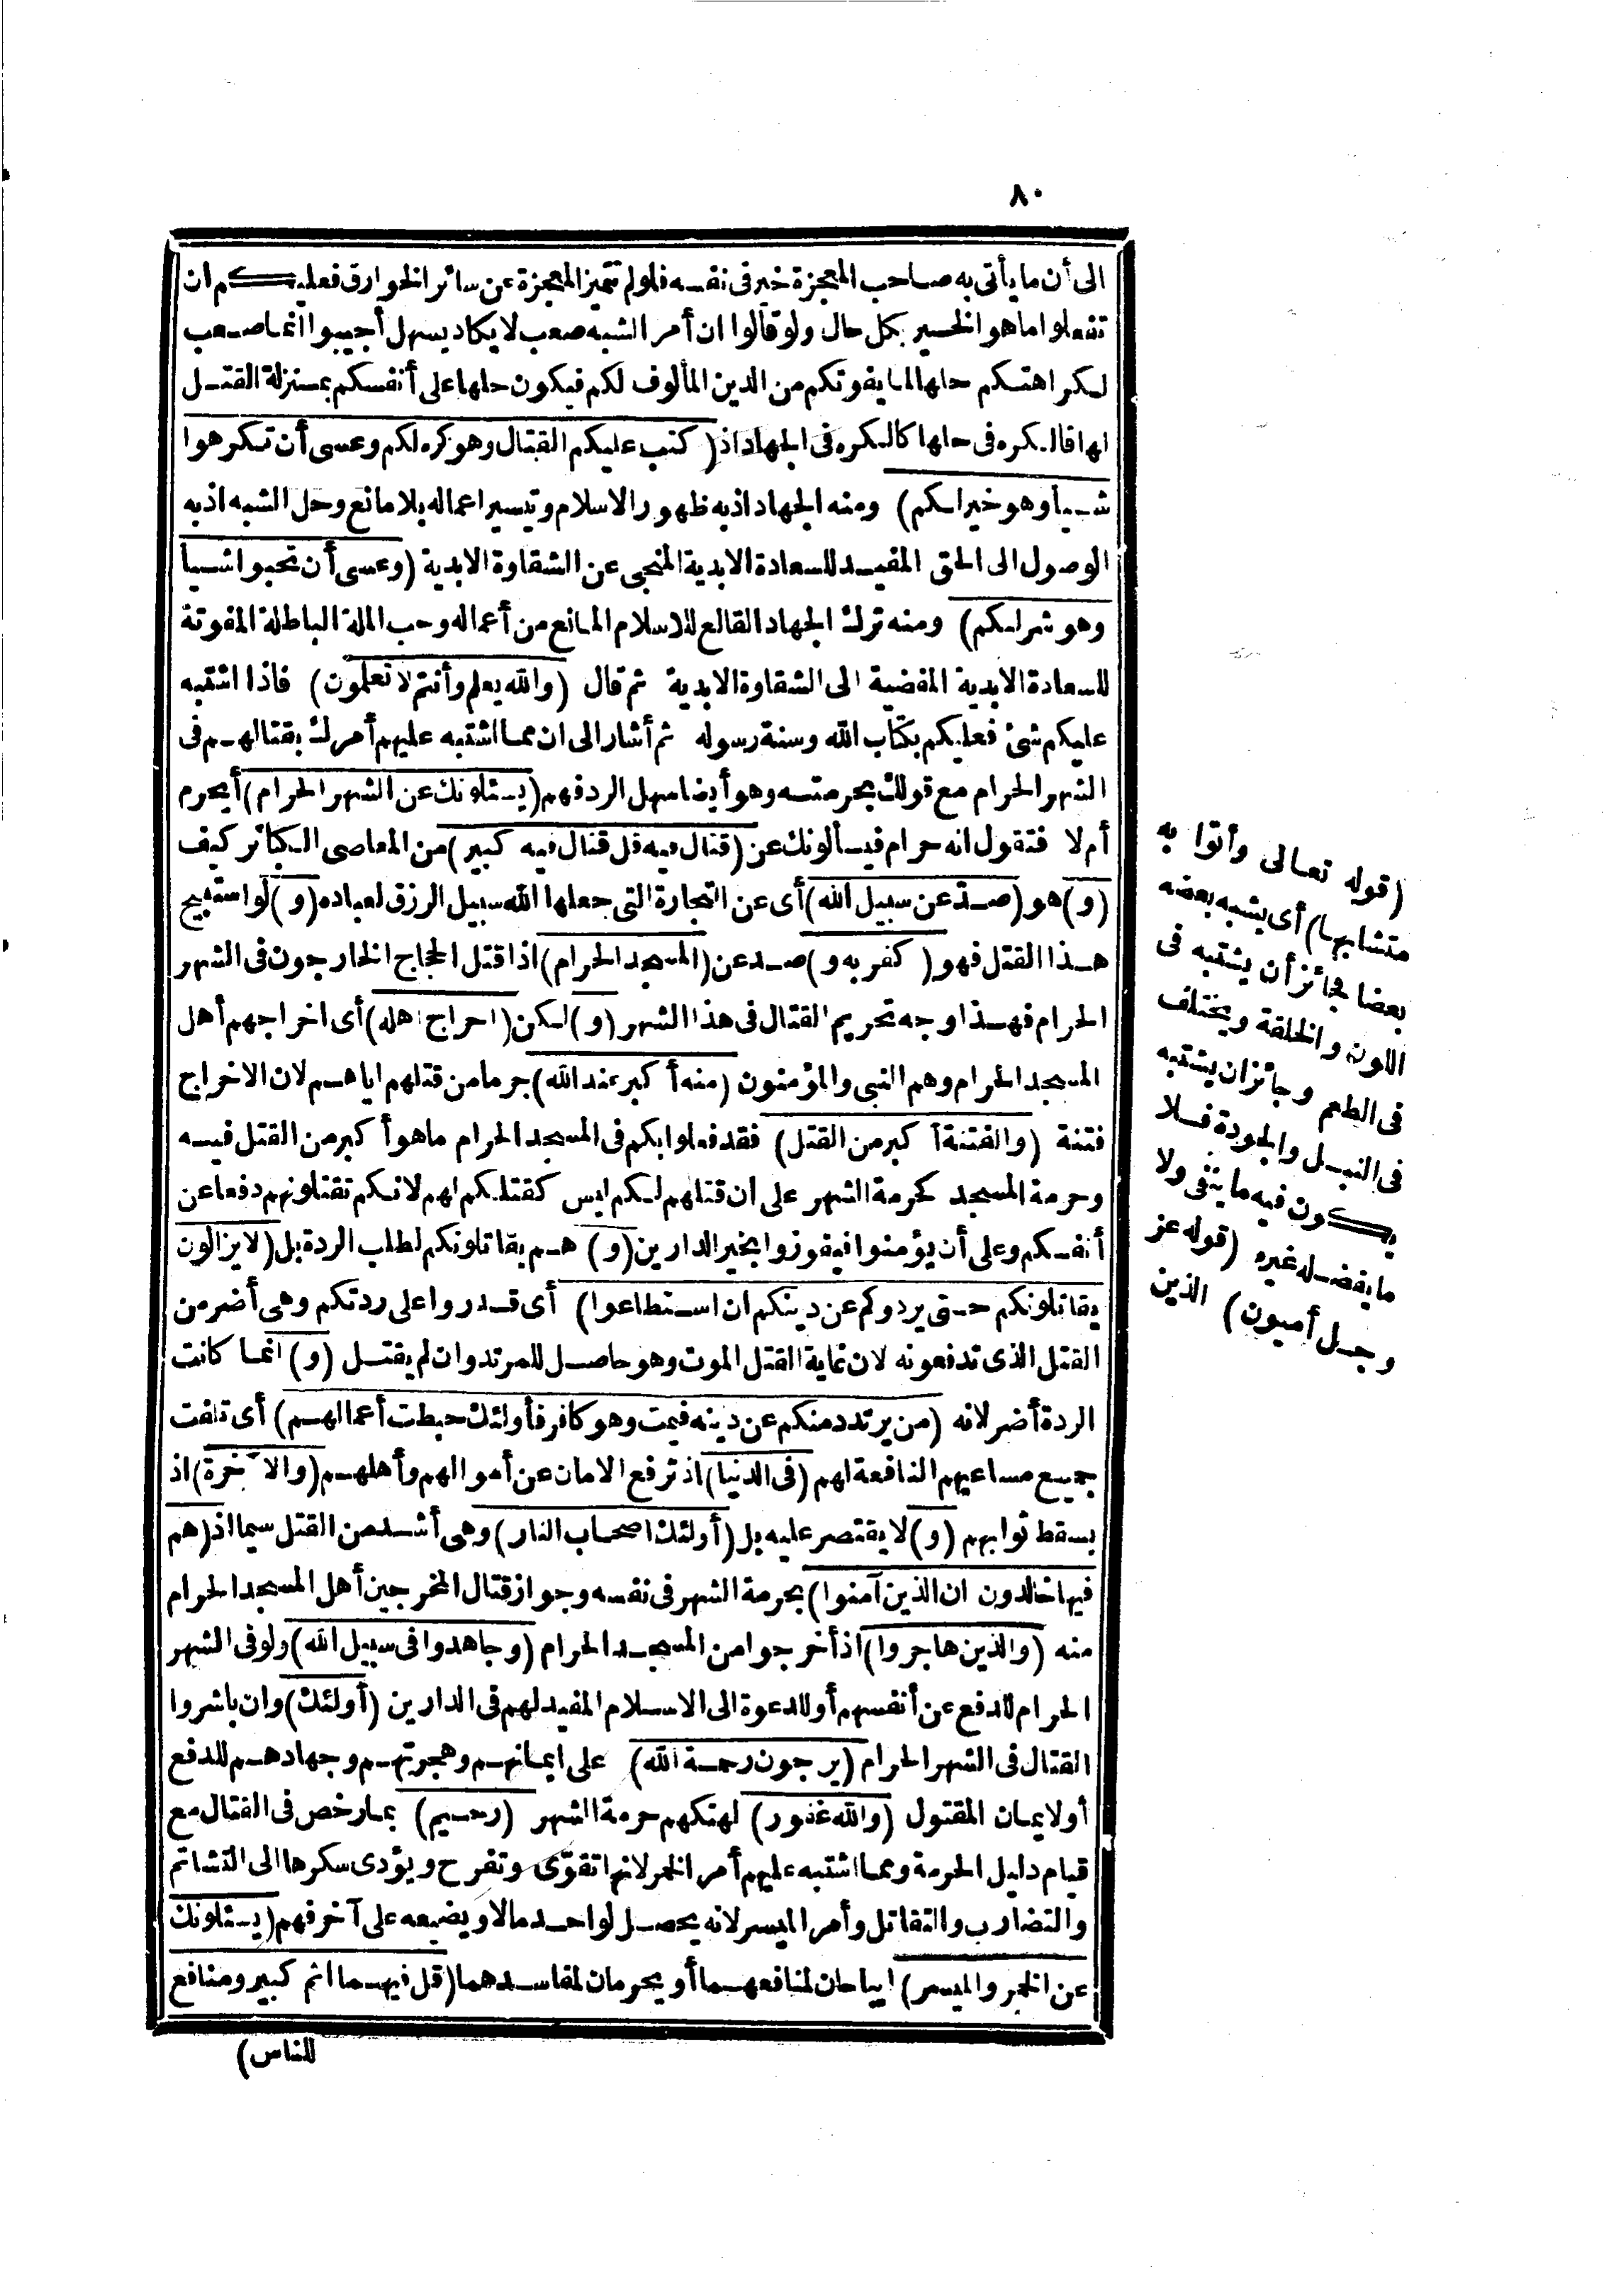 ٨٠
الى أن ما يأتى به صاحب المعجزة خير فى نفسه فلو لم تتميز المعجزة عن سائر الخوارق فعليكم ان
تفعلوا ما هو الخير بكل حال ولو قالوا ان أمر الشبه صعب لا يكاد يسهل أجيبوا انما صعب
لكراهتكم حلها لما يفوتكم من الدين المألوف لكم فيكون حلها على أنفسكم بمنزلة القتل
لها فالكره فى حلها كالكره فى الجهاد اذ (كتب عليكم القتال وهو كره لكم وعسى أن تكرهوا
شيأ وهو خير لكم) ومنه الجهاد اذ به ظهور الاسلام وتيسير اعماله بلا مانع وحل الشبه اذ به
الوصول الى الحق المفيد للسعادة الابدية المنجى عن الشقاوة الابدية (وعسى أن تحبوا شيأ
وهو شر لكم) ومنه ترك الجهاد القالع للاسلام المانع من أعماله وحب الملة الباطلة المفوتة
للسعادة الابدية المفضية الى الشقاوة الابدية ثم قال (والله يعلم وأنتم لا تعلمون) فاذا اشتبه
عليكم شئ فعليكم بكتاب الله وسنة رسوله ثم أشار الى ان مما اشتبه عليهم أمرك بقتالهم فى
الشهر الحرام مع قولك بحرمته وهو أيضا سهل الرد فهم (يسئلونك عن الشهر الحرام) أيحرم
أم لا فتقول انه حرام فيسألونك عن (قتال فيه قل قتال فيه كبير) من المعاصى الكبائر كيف
(و) هو (صدّ عن سبيل الله) أى عن التجارة التى جعلها الله سبيل الرزق لعباده (و) لو استبيح
هذا القتل فهو (كفر به و) صد عن (المسجد الحرام) اذا قتل الحجاج الخارجون فى الشهر
الحرام فهذا وجه تحريم القتال فى هذا الشهر (و) لكن (اخراج اهله) أى اخراجهم أهل
المسجد الحرام وهم النبى والمؤمنون (منه أكبر عند الله) جرما من قتلهم اياهم لان الاخراج
فتنة (والفتنة أكبر من القتل) فقد فعلوا بكم فى المسجد الحرام ما هو أكبر من القتل فيه
وحرمة المسجد كحرمة الشهر على ان قتلهم لكم ليس كقتلكم لهم لانكم تقتلونهم دفعا عن
أنفسكم وعلى أن يؤمنوا فيفوزوا بخير الدارين (و) هم يقاتلونكم لطلب الردة بل (لا يزالون
يقاتلونكم حتى يردوكم عن دينكم ان استطاعوا) أى قدروا على ردتكم وهى أضر من
القتل الذى تدفعونه لان غاية القتل الموت وهو حاصل للمرتد وان لم يقتل (و) انما كانت
الردة أضر لانه (من يرتدد منكم عن دينه فيمت وهو كافر فأولئك حبطت أعمالهم) أى تلفت
جميع مساعيهم النافعة لهم (فى الدنيا) اذ ترفع الامان عن أموالهم وأهلهم (والآخرة) اذ
يسقط ثوابهم (و) لا يقتصر عليه بل (أولئك اصحاب النار) وهى أشد من القتل سيما اذ (هم
فيها خالدون ان الذين آمنوا) بحرمة الشهر فى نفسه وجواز قتال المخرجين أهل المسجد الحرام
منه (والذين هاجروا) اذ أخرجوا من المسجد الحرام (وجاهدوا فى سبيل الله) ولو فى الشهر
الحرام للدفع عن أنفسهم أو للدعوة الى الاسلام المفيد لهم فى الدارين (أولئك) وان باشروا
القتال فى الشهر الحرام (يرجون رحمة الله) على ايمانهم وهجرتهم وجهادهم للدفع
أو لايمان المقتول (والله غفور) لهتكهم حرمة الشهر (رحيم) بما رخص فى القتال مع
قيام دليل الحرمة ومما اشتبه عليهم أمر الخمر لانها تقوّى وتفرح ويؤدى سكرها الى التشاتم
والتضارب والتقاتل وأمر الميسر لانه يحصل لواحد مالا ويضيعه على آخر فهم (يسئلونك
عن الخمر والميسر) ايباحان لمنافعهما أو يحرمان لمفاسدهما (قل فيهما اثم كبير ومنافع
للناس)
(قوله تعالى وأتوا به
متشابها) أى يشبه بعضه
بعضا فجائز أن يشتبه فى
اللون والخلقة ويختلف
فى الطعم وجائز ان يشتبه
فى النبل والجودة فلا
يكون فيه ما ينفى ولا
ما يفضله غيره (قوله عز
وجل أميون) الذين